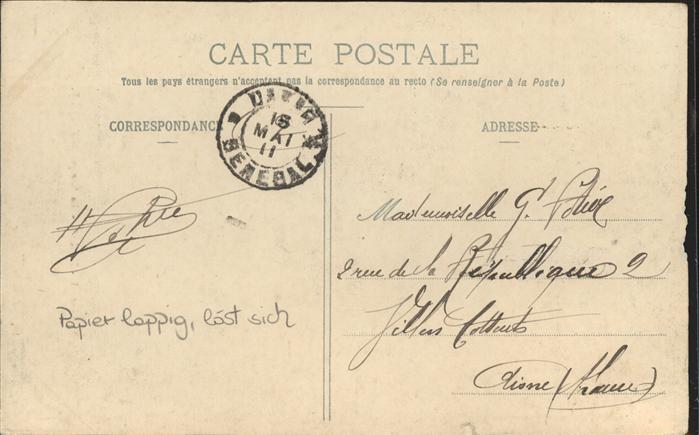 CARTE POSTALE
Tous les pays étrangers n'acceptent pas la correspondance au recto (Se renseigner à la Poste)
CORRESPONDANCE
ADRESSE
DAKAR
16
MAI
11
SENEGAL
Mademoiselle G.
2 rue de la République 2
Villers Cotterets
Aisne (France)
Papier lappig, löst sich